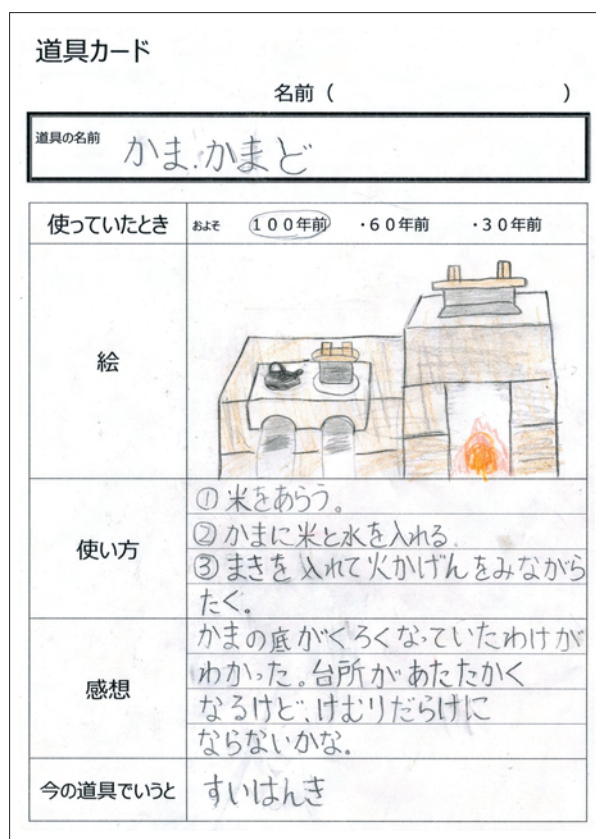 道具カード
名前（　　　　　　　　　　）
道具の名前 かま.かまど
使っていたとき およそ １００年前 ・６０年前 ・３０年前
絵
使い方
①米をあらう。
②かまに米と水を入れる.
③まきを入れて火かげんをみながら
たく。
感想
かまの底がくろくなっていたわけが
わかった。台所があたたかく
なるけど、けむりだらけに
ならないかな。
今の道具でいうと すいはんき